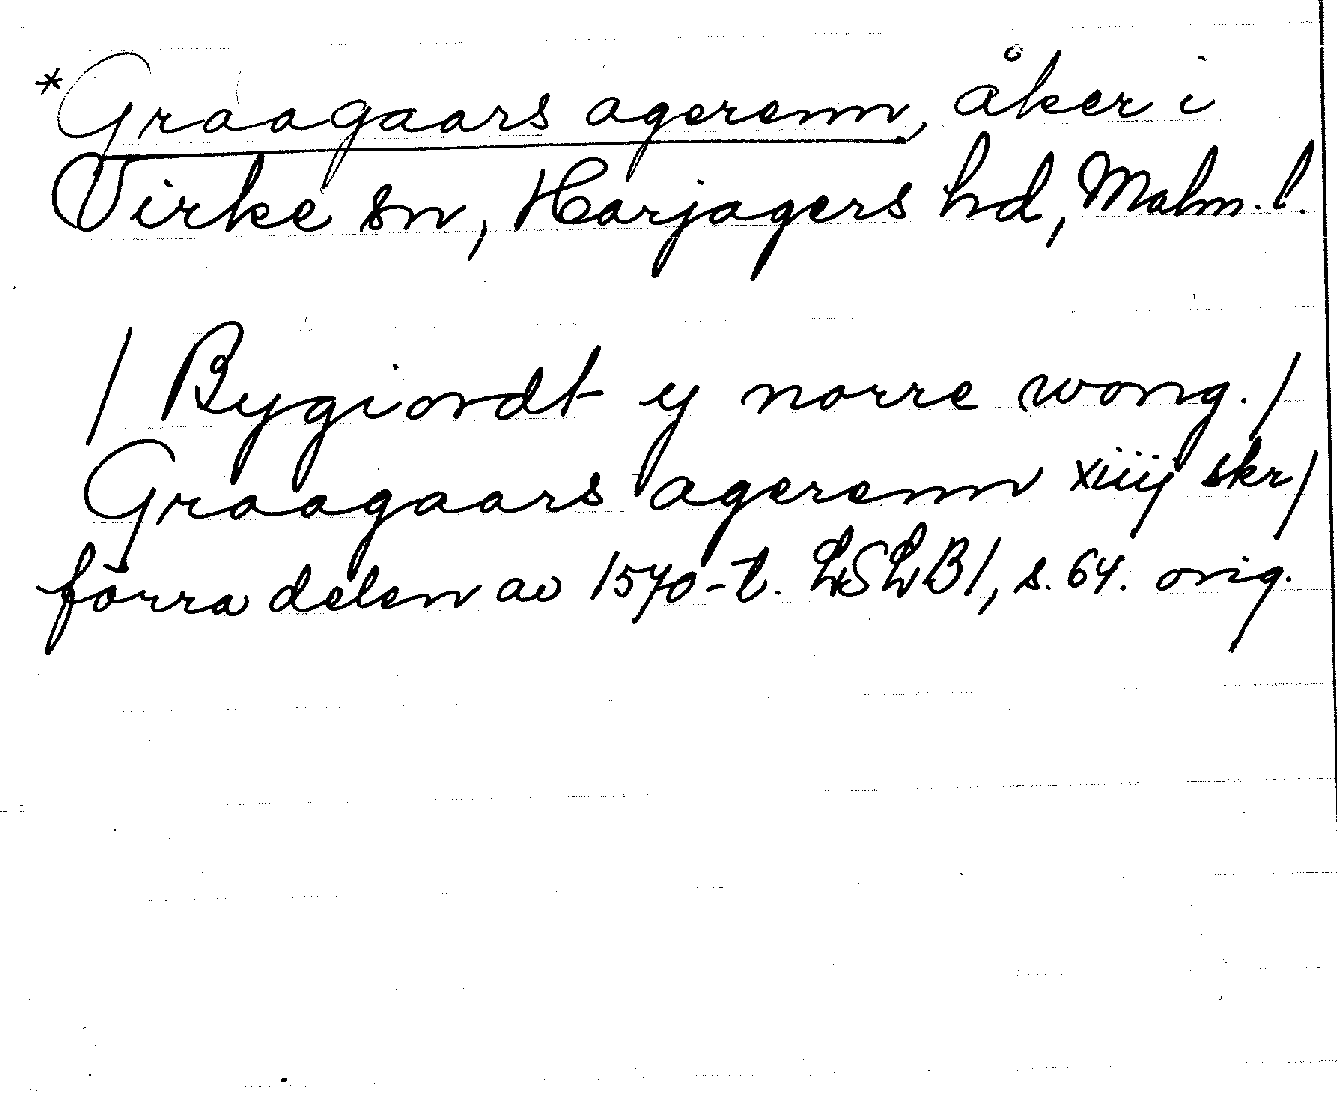 *Graagaars agerenn, åker i
Virke sn, Harjagers hd, Malm. l.
/ Bygiordt y norre wong. /
Graagaars agerenn xiiij skr /
förra delen av 1570-t. LSLB1, s. 64. orig.